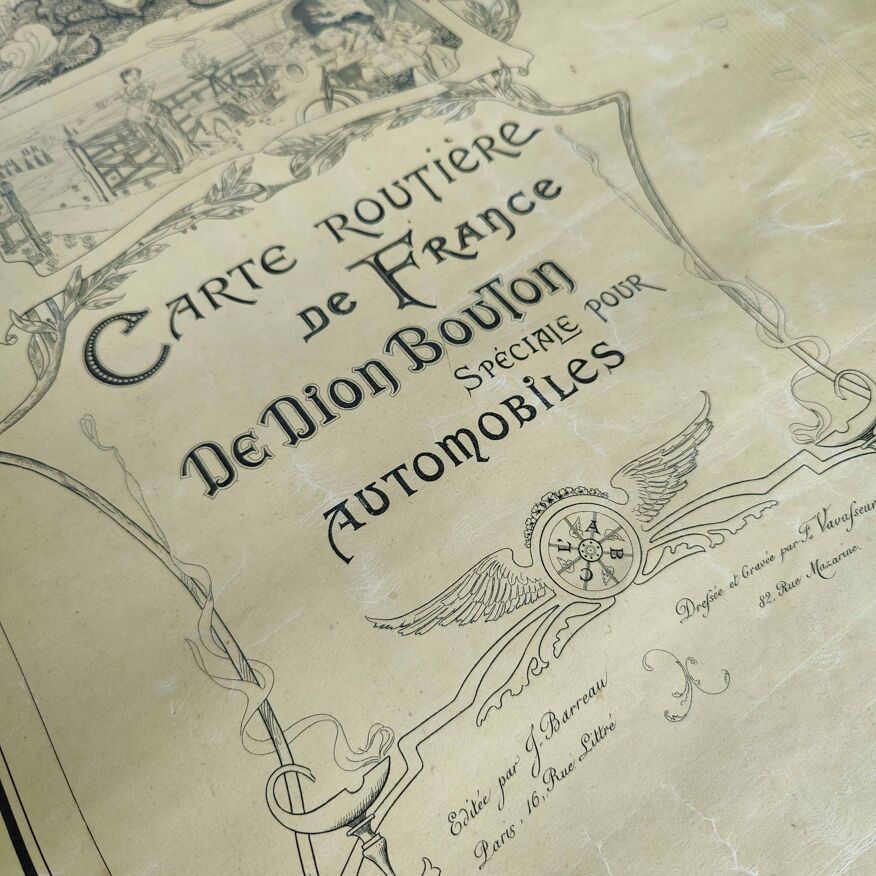 CARTE ROUTIÈRE
DE FRANCE
DE DION BOUTON
SPÉCIALE POUR
AUTOMOBILES
L'ABC
Editée par J. Barreau
Paris, 16, Rue Littré
Dreſsée et Gravée par F. Vavaſseur
82, Rue Mazarine.